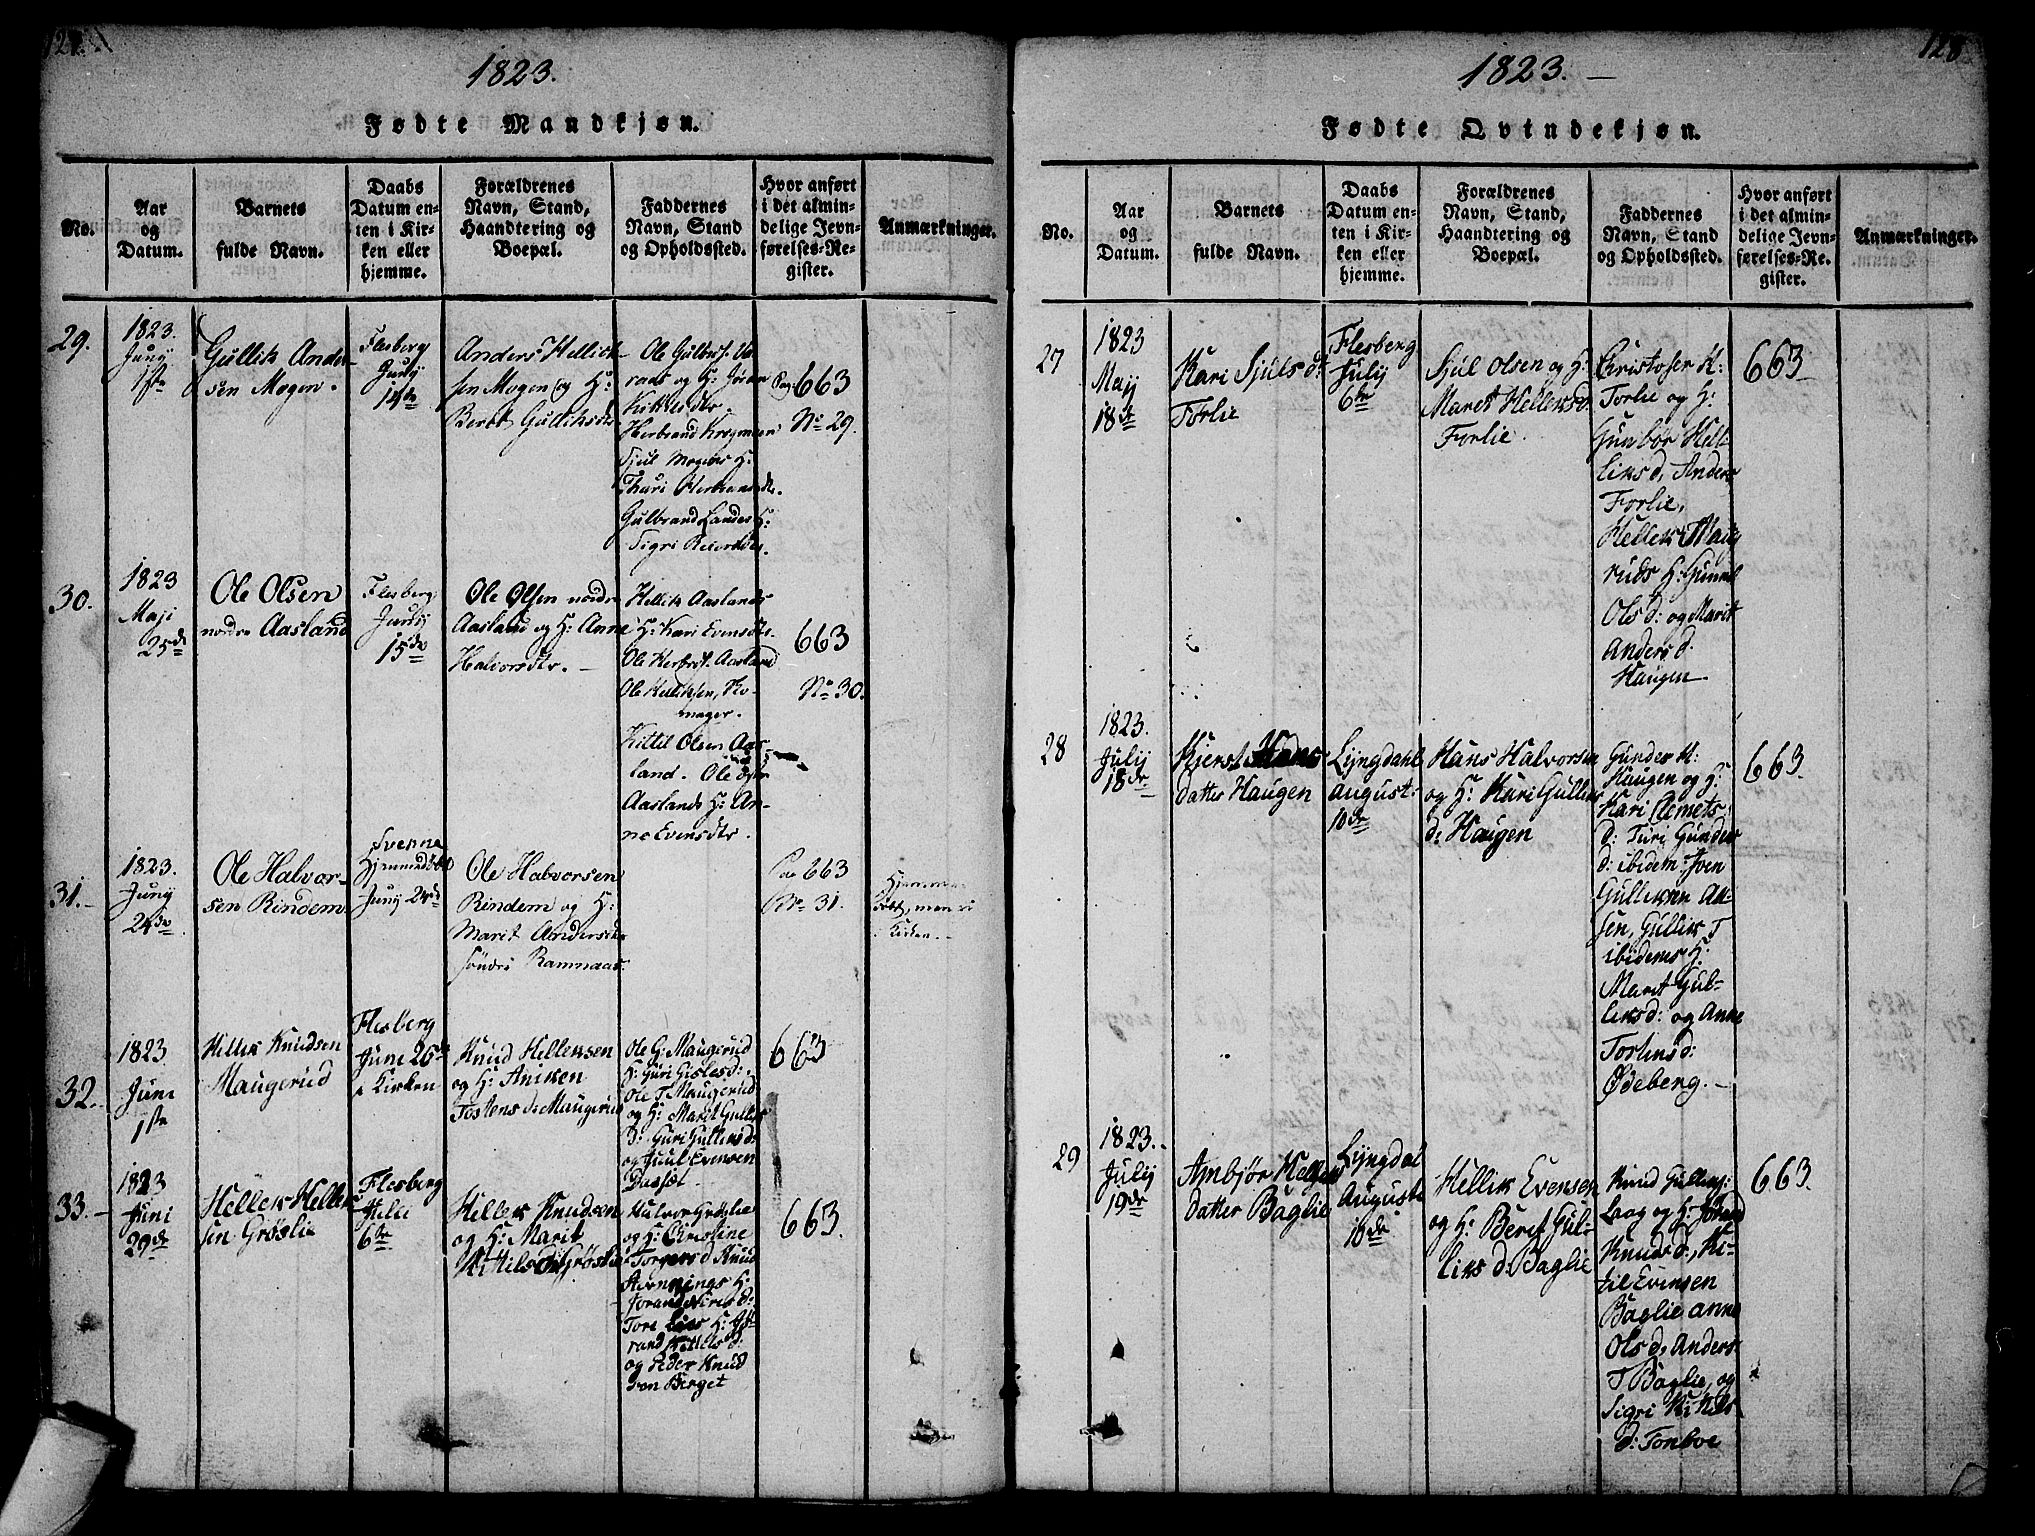 127.
1823.
Fødte Mandkjøn.
No.
Aar
og
Datum.
Barnets
fulde Navn.
Daabs
Datum en-
ten i Kir-
ken eller
hjemme.
Forældrenes
Navn, Stand,
Haandtering og
Boepæl.
Faddernes
Navn, Stand
og Opholdssted.
Hvor anført
i det almin-
delige Jevn-
førelses-Re-
gister.
Anmærkninger.
29.
1823.
Juny
1ste
Gullik Ander-
sen Mogen.
Flesberg
Juny
15de
Anders Hellick-
sen Mogen og H:
Berit Gulliksdtr
Ole Gulbrs.
og H: Jøran
Kittilsdtr.
Herbrand
Sjul Mogens H:
Thuri Herbransdtr.
Gulbrand Landes H:
Sigri
Pag: 663
No 29.
30.
1823
Maji
25de
Ole Olsen
nordre Aasland
Flesberg
Juny
15de
Ole Olsen nordre
Aasland og H: Anne
Halvorsdtr. -
Hellik Aaslands
H: Kari Evensdtr.
Ole Herbrst. Aasland
Ole Helliksen, Ko-
mager.
Kittil Olsen Aas-
land. Ole
Aaslands H: An-
ne Evensdtr.
663
No 30.
31.-
1823.
Juny
24de
Ole Halvor-
sen Rindem
Svenne
Juny 24de
Ole Halvorsen
Rindem og H:
Marit Andersdtr
søndre Ramnaas.
Pag 663
No 31.
Hjemme-
døbt, men i
Kirken.-
32.-
1823
Juni
1ste
Hellik Knudsen
Maugerud
Flesberg
June 26
i Kirken
Knud Helleksen
og H: Aniken
Tostens d: Maugerud
Ole G: Maugerud
H: Guri Gisles d:,
Ole T Maugerud
og H: Marit Gulleks
d: Guri Gulleks d:
og Juul Evensen
663
33.-
1823
Juni
29de
Hellek Hellek
sen Grøslie
Flesberg
Julii
6te
Hellek Knudsen
og H: Marit
Kittils d: Grøslie
Halvor Grøslie
og H: Christine
Torgers d: Knud
Stevnings H:
Joran Niels d:
Tore H: Jø-
rand Kittils d:
og Peder Knud
sen Berget
663.
128
1823. -
Fødte Qvindekjøn.
No.
Aar
og
Datum.
Barnets
fulde Navn.
Daabs
Datum en-
ten i Kir-
ken eller
hjemme.
Forældrenes
Navn, Stand,
Haandtering og
Boepæl.
Faddernes
Navn, Stand
og Opholdssted.
Hvor anført
i det almin-
delige Jevn-
førelses-Re-
gister.
Anmærkninger.
27
1823
Maij
18de
Kari Sjuls d:
Forlie
Flesberg
Julij
6te
Sjul Olsen og H:
Maret Helleks d.
Forlie.
Christofer K:
Forlie og H:
Gunbør Hel-
leks d, Anders
Forlie,
Hellek Mau
ruds H: Gunnil
Ols d: og Marit
Anders d:
Haugen
663
28
1823.
Julij
18de
Kjerst Hans
datter Haugen
Lyngdahl
August:
10de
Hans Halvorsen
og H: Kari Gulleks
d: Haugen
Gunder H:
Haugen og H:
Kari Clemets
d: Turi Gunders
d: ibidem: Iven
Gulleksen Aa-
sen, Gullik T
ibidems H:
Maret Gul-
leks d: og Anne
Torsteins d:
Ødeberg. -
663.
29
1823.-
Julij
19de
Ambjør Helleks
datter Baglie
Lyngdal
Auguste
10de
Hellik Evensen
og H: Beret Gul-
leks d: Baglie
Knud Gulleks:
Laag og H: Jørand
Knuds d:, Ki-
til Evensen
Baglie anne
Ols d, Anders
T Baglie, og
Sigri Kittils
d: Tonboe
663.